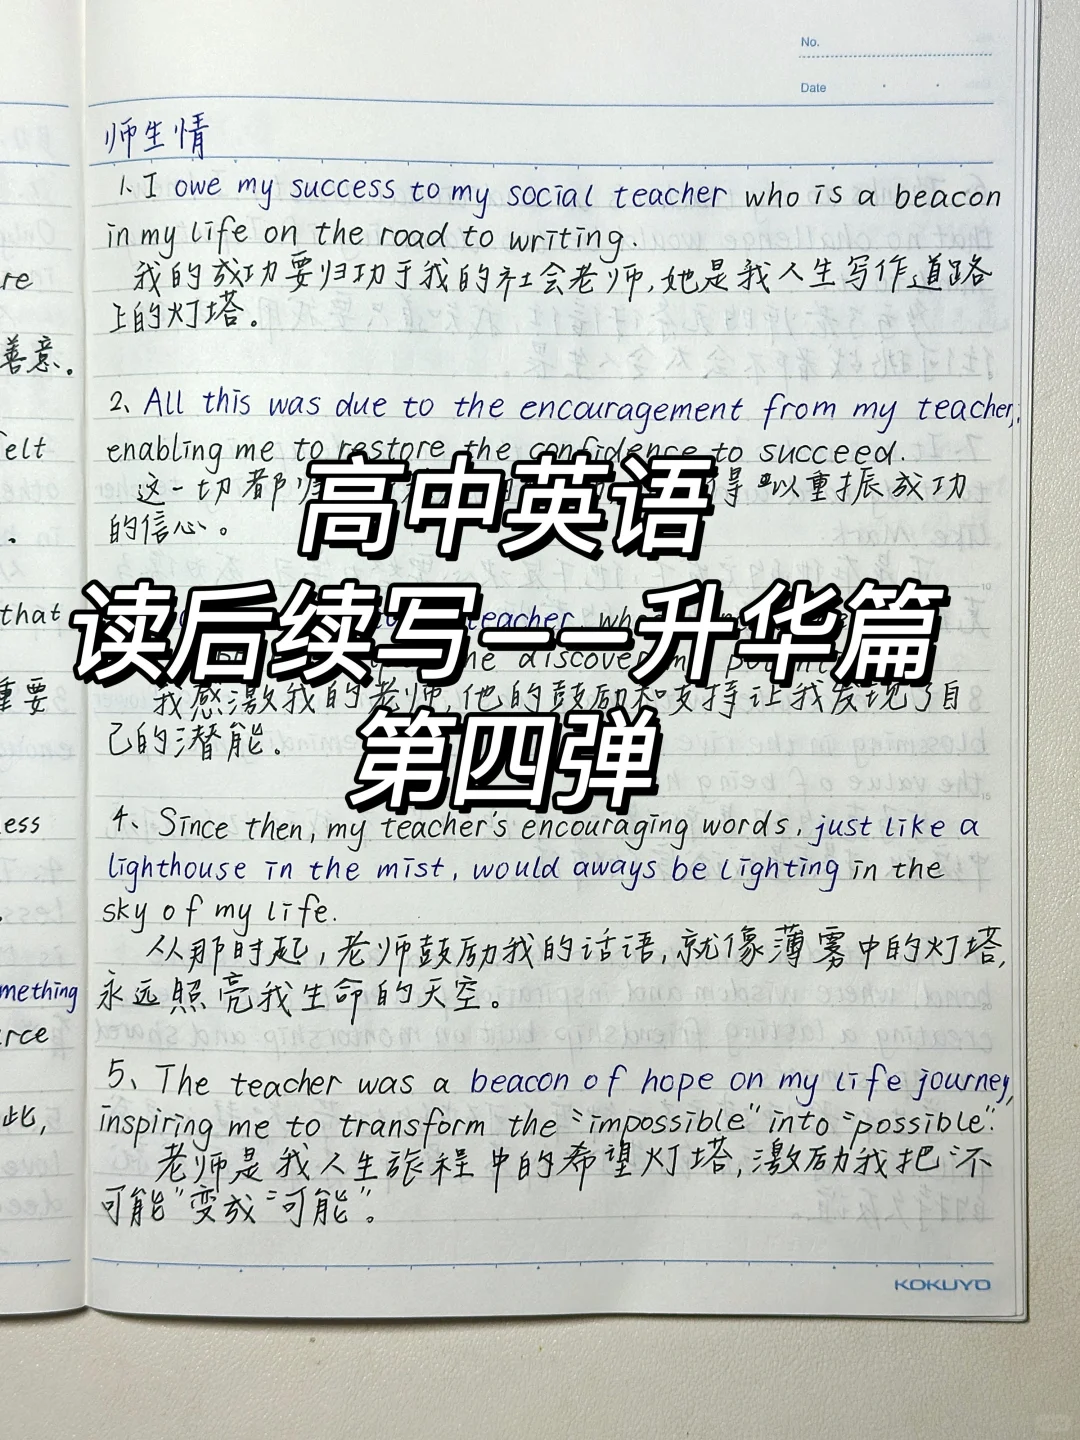 No.
Date
师生情
1、I owe my success to my social teacher who is a beacon
in my life on the road to writing.
我的成功要归功于我的社会老师,她是我人生写作道路
上的灯塔。
2、All this was due to the encouragement from my teacher,
enabling me to restore the confidence to succeed.
这一切都归 得以重振成功
的信心。
高中英语
读后续写——升华篇
第四弹
teacher
the discover my
我感激我的老师,他的鼓励和支持让我发现了自
己的潜能。
4、Since then, my teacher's encouraging words, just like a
lighthouse in the mist, would aways be lighting in the
sky of my life.
从那时起,老师鼓励我的话语,就像薄雾中的灯塔,
永远照亮我生命的天空。
5、The teacher was a beacon of hope on my life journey,
inspiring me to transform the "impossible" into "possible".
老师是我人生旅程中的希望灯塔,激励我把"不
可能"变成"可能"。
KOKUYO
re
善意。
felt
that
重要
ess
mething
rce
此,